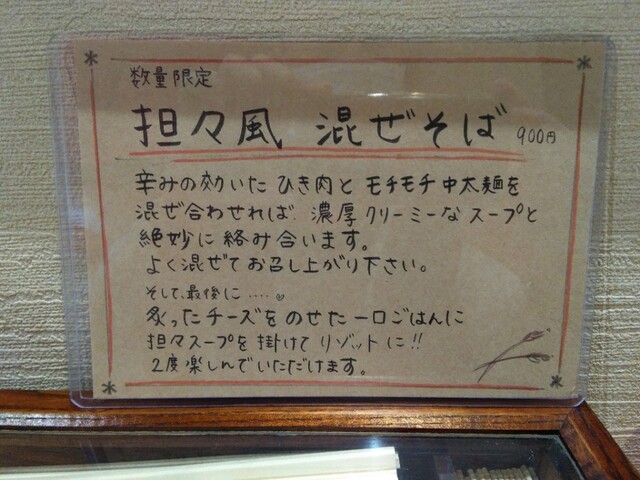 数量限定
担々風 混ぜそば 900円
辛みの効いた ひき肉と モチモチ 中太麺を
混ぜ合わせれば、濃厚クリーミーな スープと
絶妙に 絡み合います。
よく混ぜて お召し上がり下さい。
そして、最後に ‥‥♡
炙ったチーズを のせた 一口ごはんに
担々スープを 掛けて リゾットに!!
2度楽しんでいただけます。